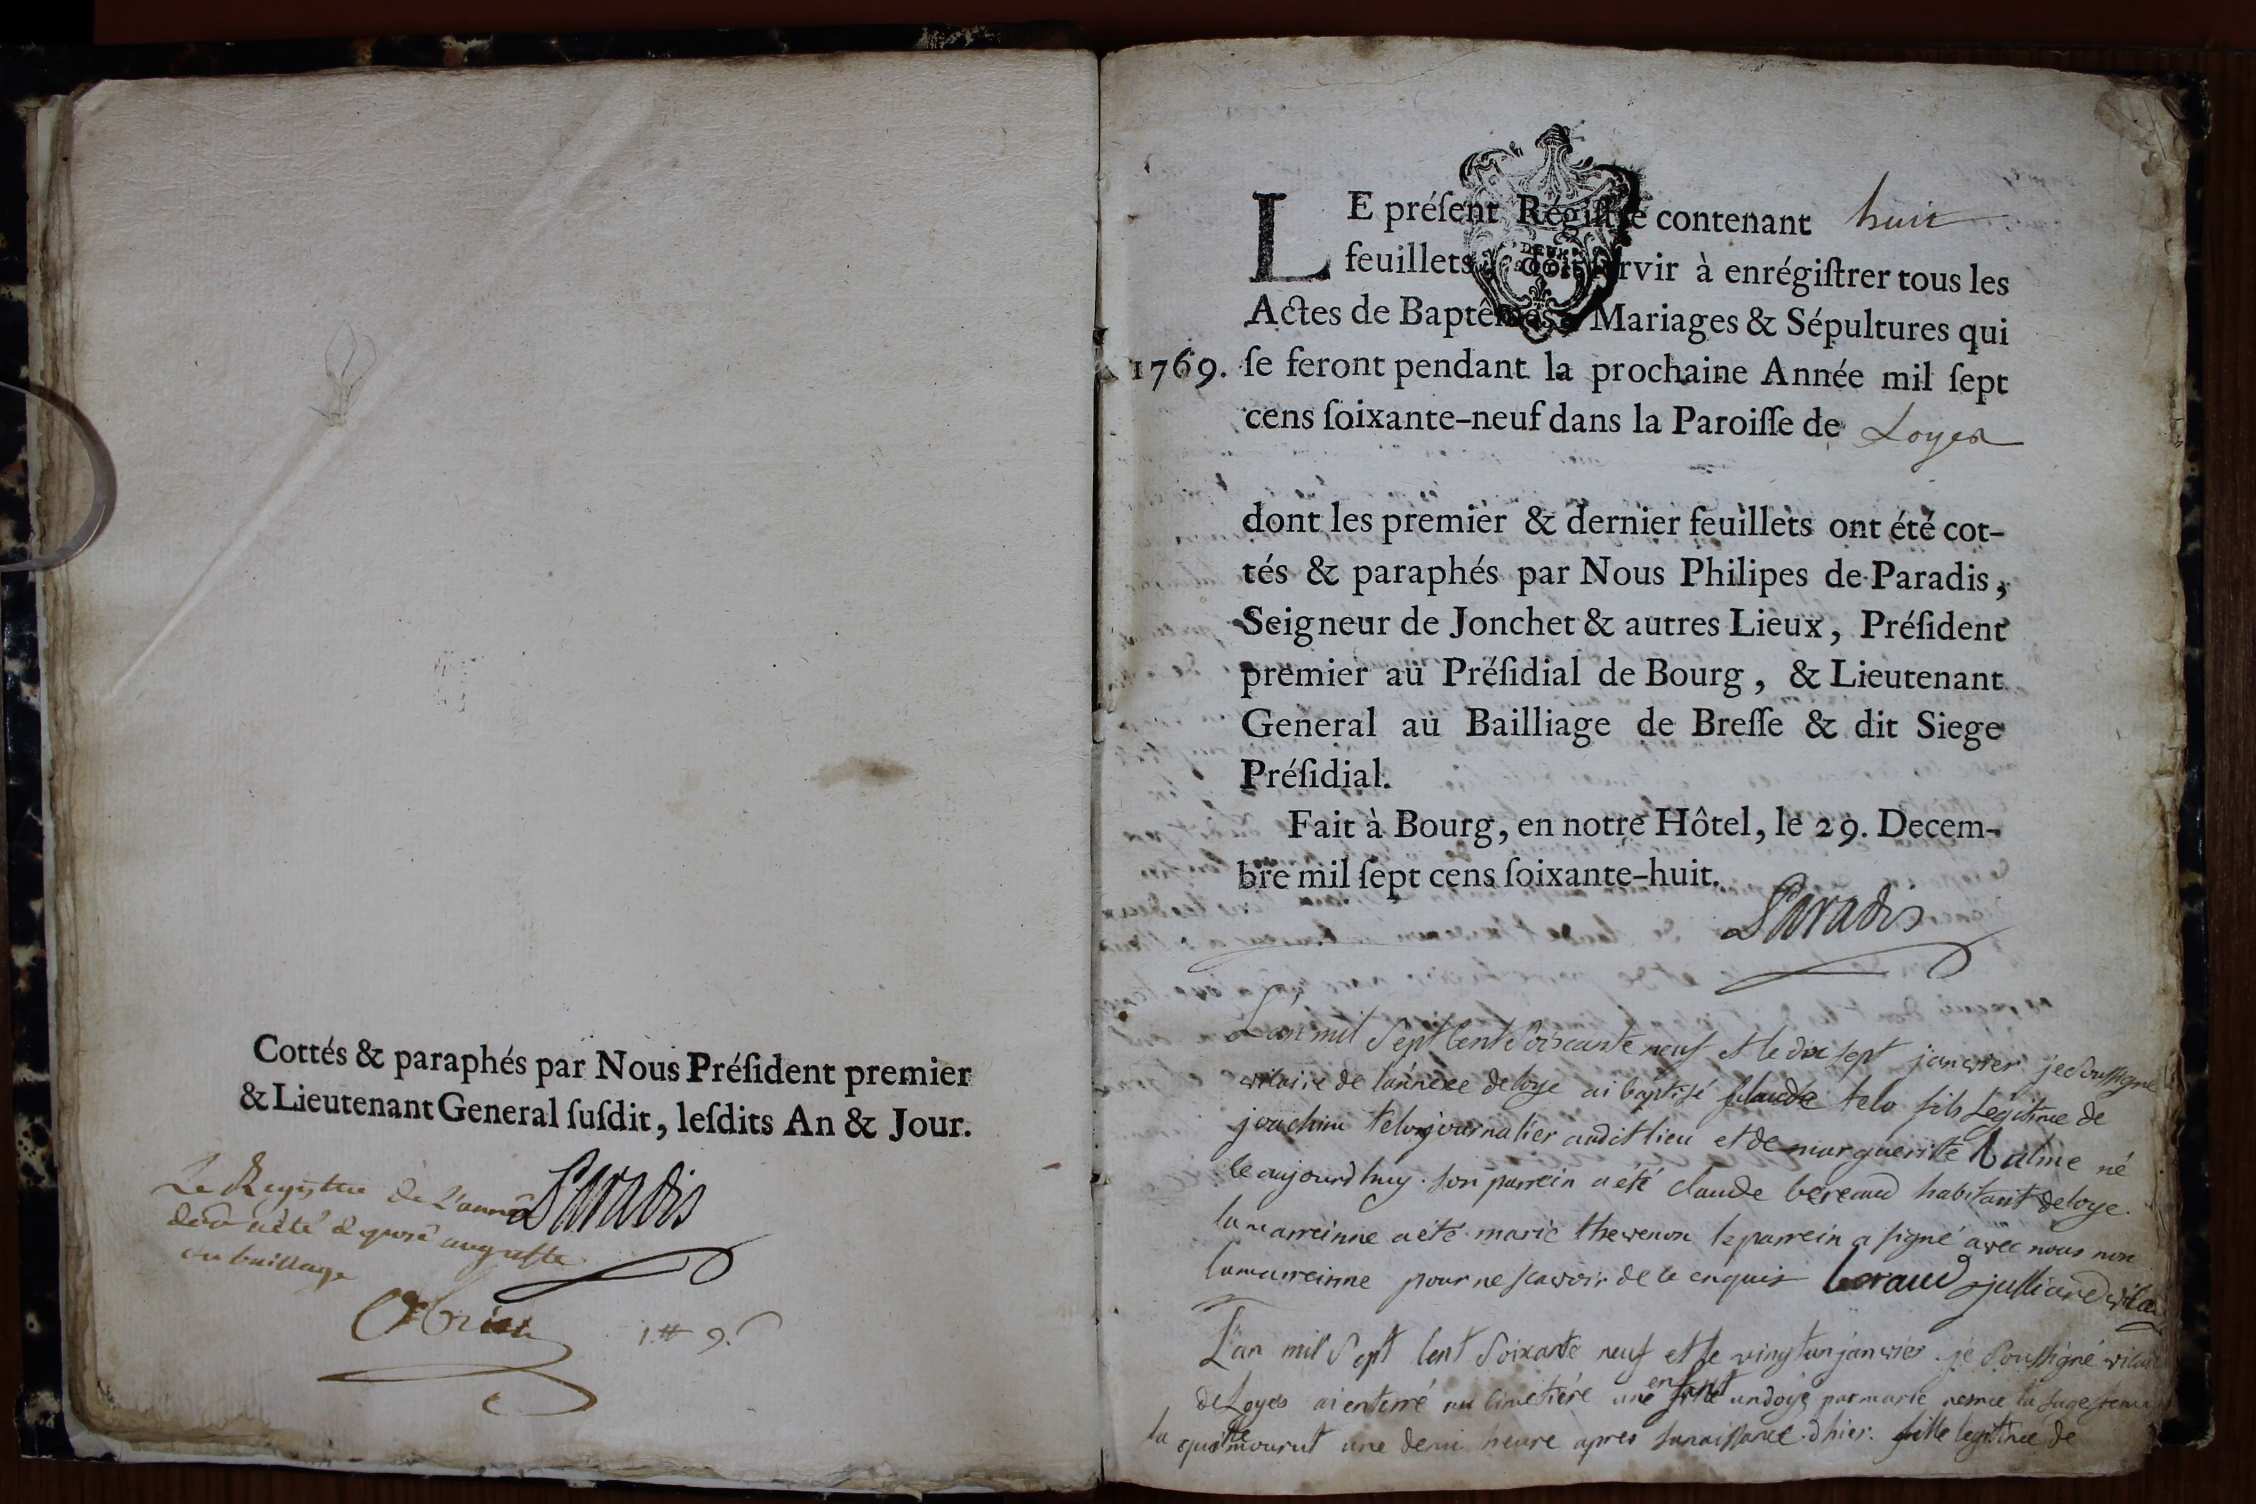 Cottés & paraphés par Nous Préſident premier
& Lieutenant General ſuſdit, leſdits An & Jour.
Paradis
Le Registre de L'année
a été au greffe
du bailliage
1.# 9.
LE préſent Régiſtre contenant huit
feuillets doit ſervir à enrégiſtrer tous les
Actes de Baptêmes, Mariages & Sépultures qui
1769. ſe feront pendant la prochaine Année mil ſept
cens ſoixante-neuf dans la Paroiſſe de Loyes
dont les premier & dernier feuillets ont été cot-
tés & paraphés par Nous Philipes de Paradis,
Seigneur de Jonchet & autres Lieux, Préſident
premier au Préſidial de Bourg, & Lieutenant
General au Bailliage de Breſſe & dit Siege
Préſidial.
Fait à Bourg, en notre Hôtel, le 29. Decem-
bre mil ſept cens ſoixante-huit.
Paradis
L'an mil Sept Cent Soixante neuf et le dix sept janvier je Soussigné
vicaire de l'annexe de loye ai baptisé Claude telo fils Légitime de
joachim telo journalier audit lieu et de marguerite balme né
le aujourdhuy. son parrein a été claude bereaud habitant de loye.
la marreinne a été marie thevenon le parrein a signé avec nous non
la marreinne pour ne scavoir de ce enquis beraud julliard vicaire
L'an mil Sept Cent Soixante neuf et le vingt un janvier je Soussigné vicaire
de Loyes ai enterré au cimetière une enfant undoyé par marie la sage femme
la quelle mourut une demi heure apres sa naissance d'hier. fille legitime de